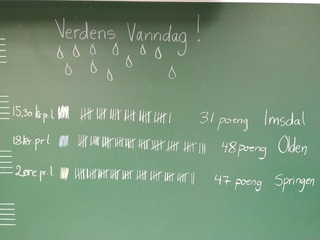 Verdens Vanndag!
15,30 kr p.l 31 poeng Imsdal
18 kr. pr. l 48 poeng Olden
2 øre pr. l 47 poeng Springen